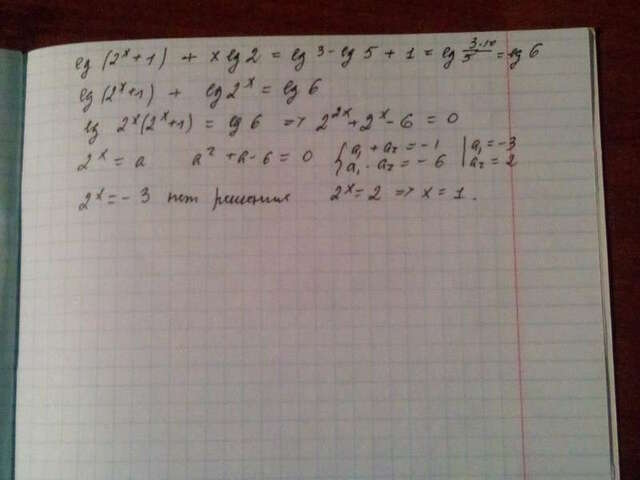 lg (2^x+1) + x lg 2 = lg 3 - lg 5 + 1 = lg 3·10/5 = lg 6
lg (2^x+1) + lg 2^x = lg 6
lg 2^x (2^x+1) = lg 6 => 2^2x + 2^x - 6 = 0
2^x = a a² + a - 6 = 0 { a₁ + a₂ = -1 | a₁ = -3
a₁ · a₂ = -6 | a₂ = 2
2^x = -3 нет решения 2^x = 2 => x = 1.